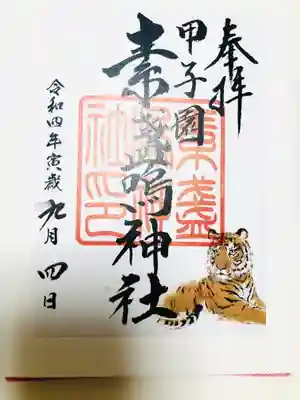 奉拝
甲子園
素盞嗚神社
令和四年寅歳
九月四日